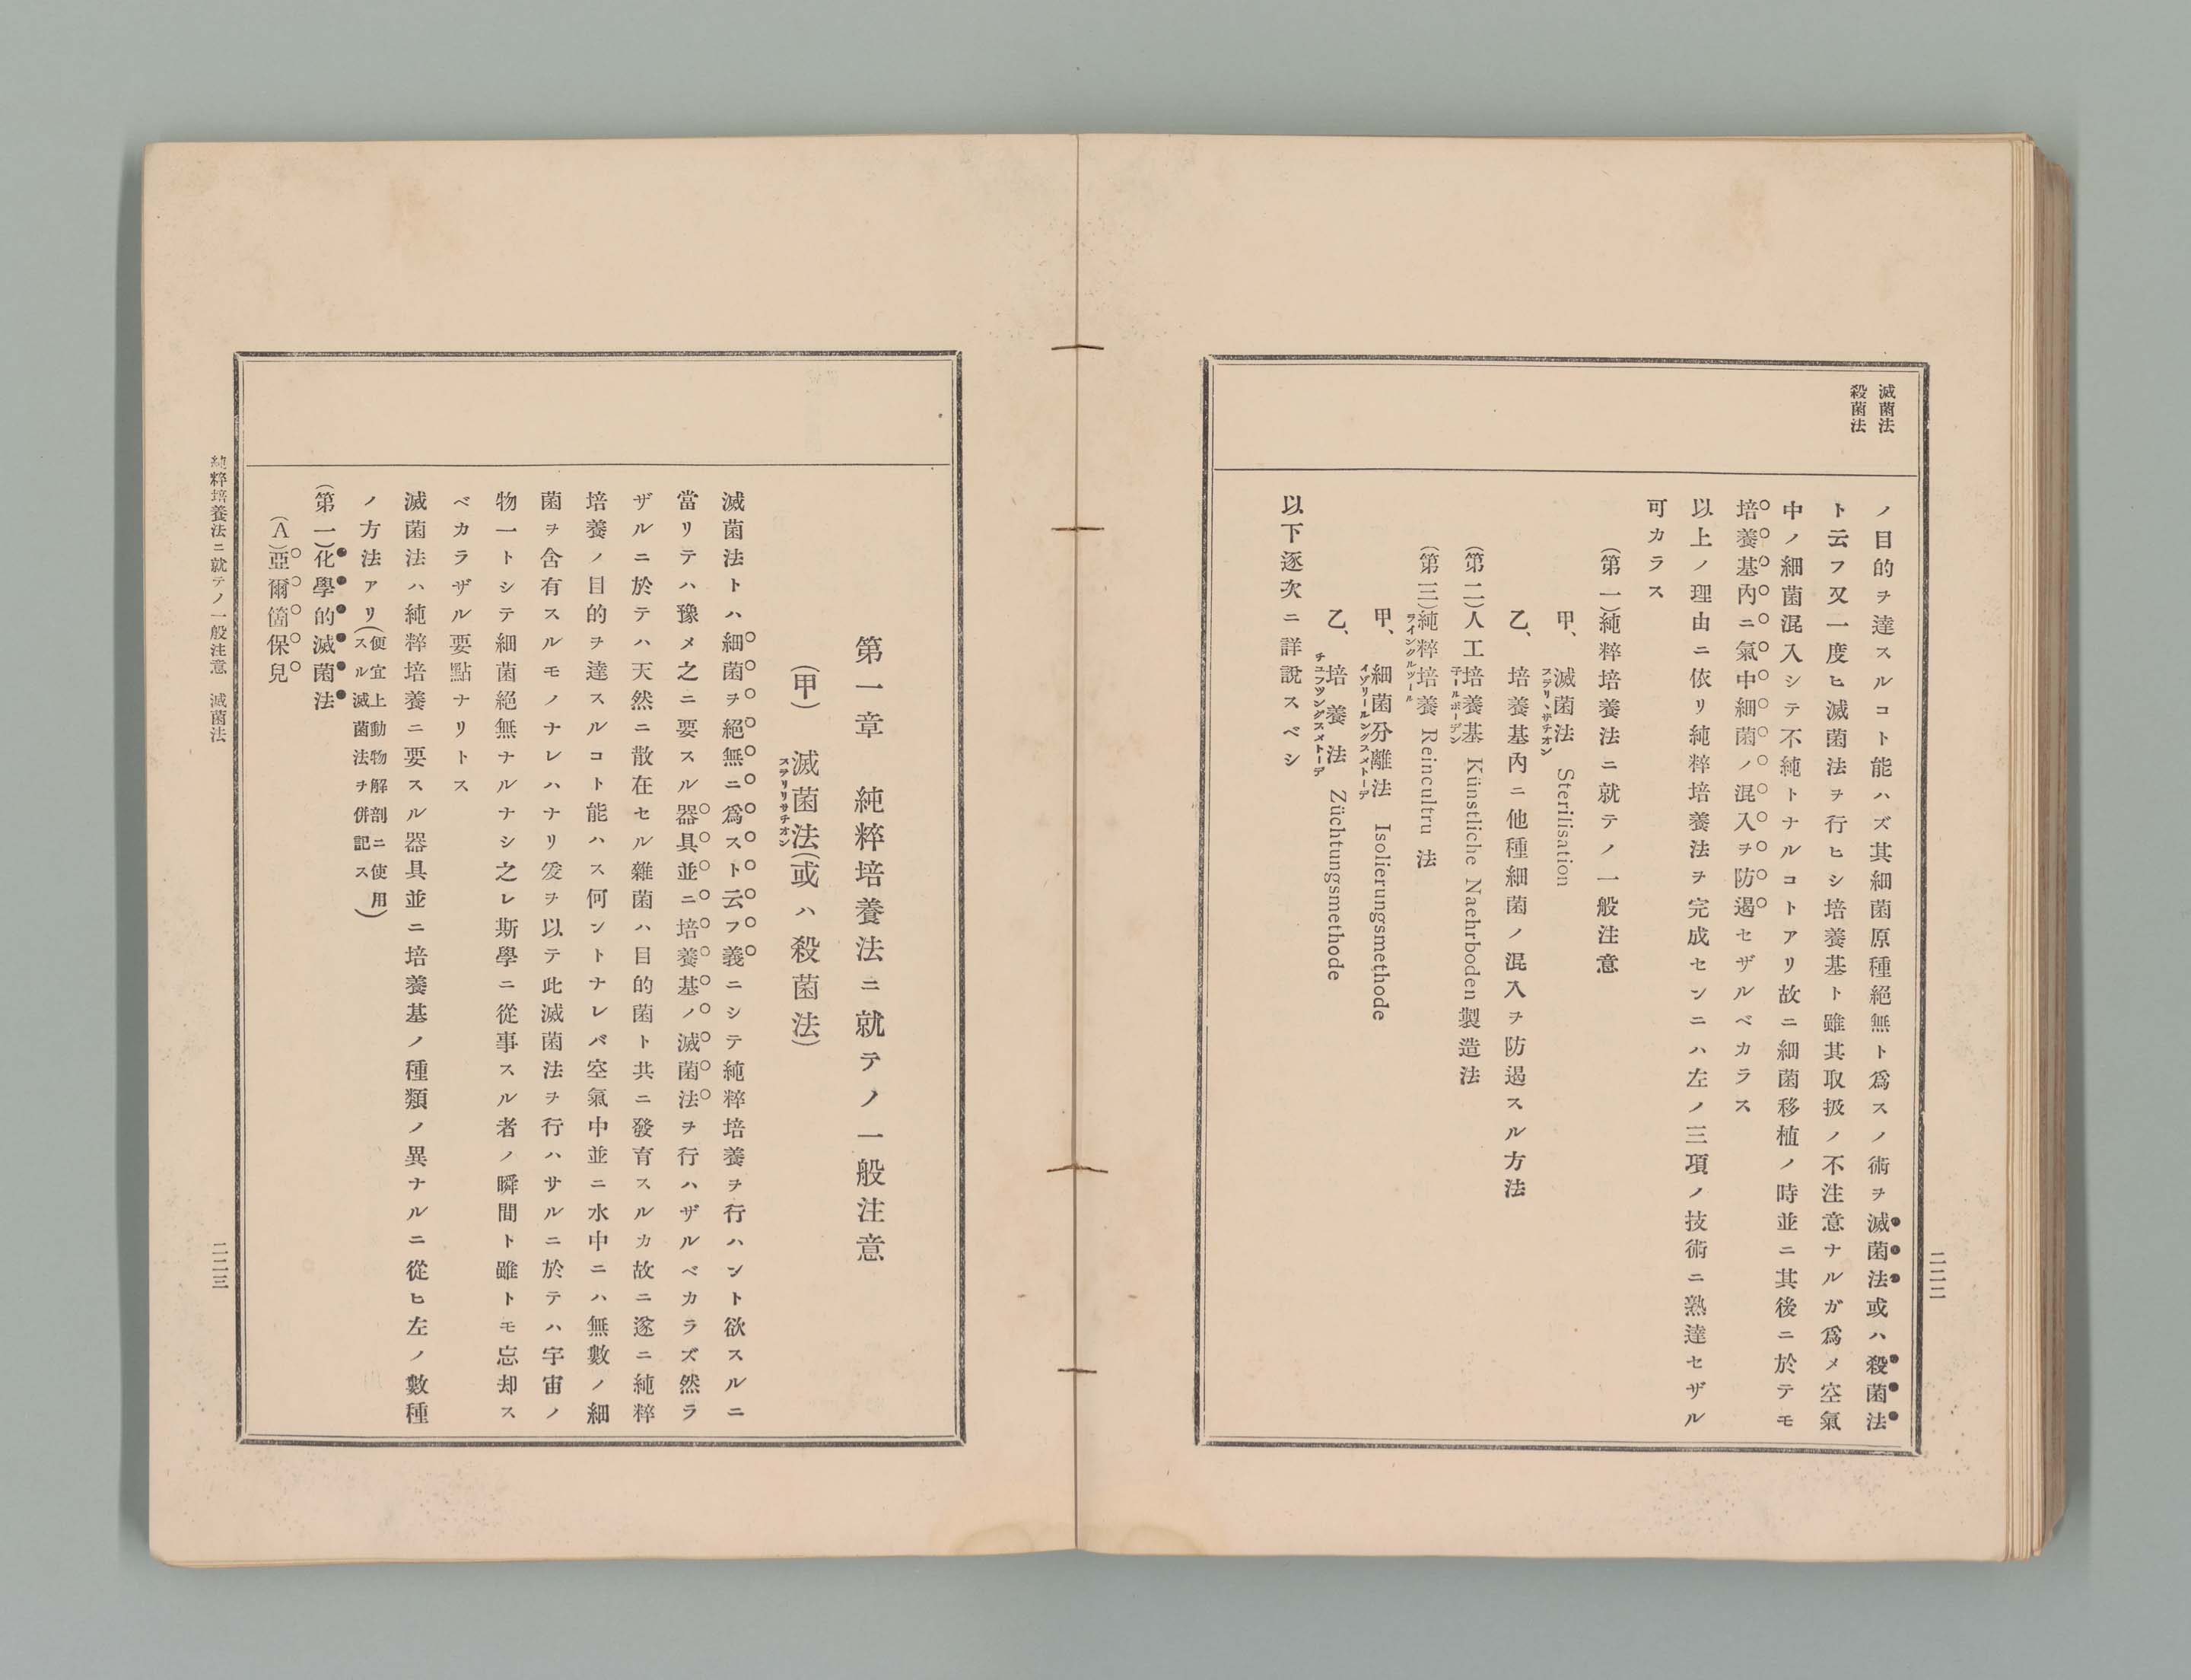 滅菌法
殺菌法
ノ目的ヲ達スルコト能ハズ其細菌原種絕無ト爲スノ術ヲ滅菌法或ハ殺菌法
ト云フ又一度ヒ滅菌法ヲ行ヒシ培養基ト雖其取扱ノ不注意ナルガ爲メ空氣
中ノ細菌混入シテ不純トナルコトアリ故ニ細菌移植ノ時並ニ其後ニ於テモ
培養基內ニ氣中細菌ノ混入ヲ防遏セザルベカラス
以上ノ理由ニ依リ純粹培養法ヲ完成センニハ左ノ三項ノ技術ニ熟達セザル
可カラス
(第一)純粹培養法ニ就テノ一般注意
甲、滅菌法 Sterilisation
ステリヽサチオン
乙、培養基內ニ他種細菌ノ混入ヲ防遏スル方法
(第二)人工培養基 Künstliche Naehrboden 製造法
テールボーデン
(第三)純粹培養 Reincultru 法
ラインクルツール
甲、細菌分離法 Isolierungsmethode
イゾリールングスメトーデ
乙、培養法 Züchtungsmethode
チユフツングスメトーデ
以下逐次ニ詳說スベシ
二二二
第一章 純粹培養法ニ就テノ一般注意
(甲) 滅菌法(或ハ殺菌法)
ステリリサチオン
滅菌法トハ細菌ヲ絕無ニ爲スト云フ義ニシテ純粹培養ヲ行ハント欲スルニ
當リテハ豫メ之ニ要スル器具並ニ培養基ノ滅菌法ヲ行ハザルベカラズ然ラ
ザルニ於テハ天然ニ散在セル雜菌ハ目的菌ト共ニ發育スルカ故ニ遂ニ純粹
培養ノ目的ヲ達スルコト能ハス何ントナレバ空氣中並ニ水中ニハ無數ノ細
菌ヲ含有スルモノナレハナリ爰ヲ以テ此滅菌法ヲ行ハサルニ於テハ宇宙ノ
物一トシテ細菌絕無ナルナシ之レ斯學ニ從事スル者ノ瞬間ト雖トモ忘却ス
ベカラザル要點ナリトス
滅菌法ハ純粹培養ニ要スル器具並ニ培養基ノ種類ノ異ナルニ從ヒ左ノ數種
ノ方法アリ(便宜上動物解剖ニ使用
スル滅菌法ヲ併記ス)
(第一)化學的滅菌法
(A)亞爾箇保兒
純粹培養法ニ就テノ一般注意 滅菌法
二二三